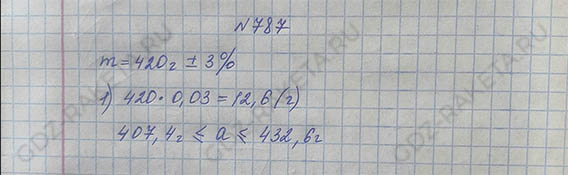 №787
m = 420г ± 3%
1) 420 · 0,03 = 12,6 (г)
407,4г ≤ a ≤ 432,6г
GDZ-RAKETA.RU
GDZ-RAKETA.RU
GDZ-RAKETA.RU